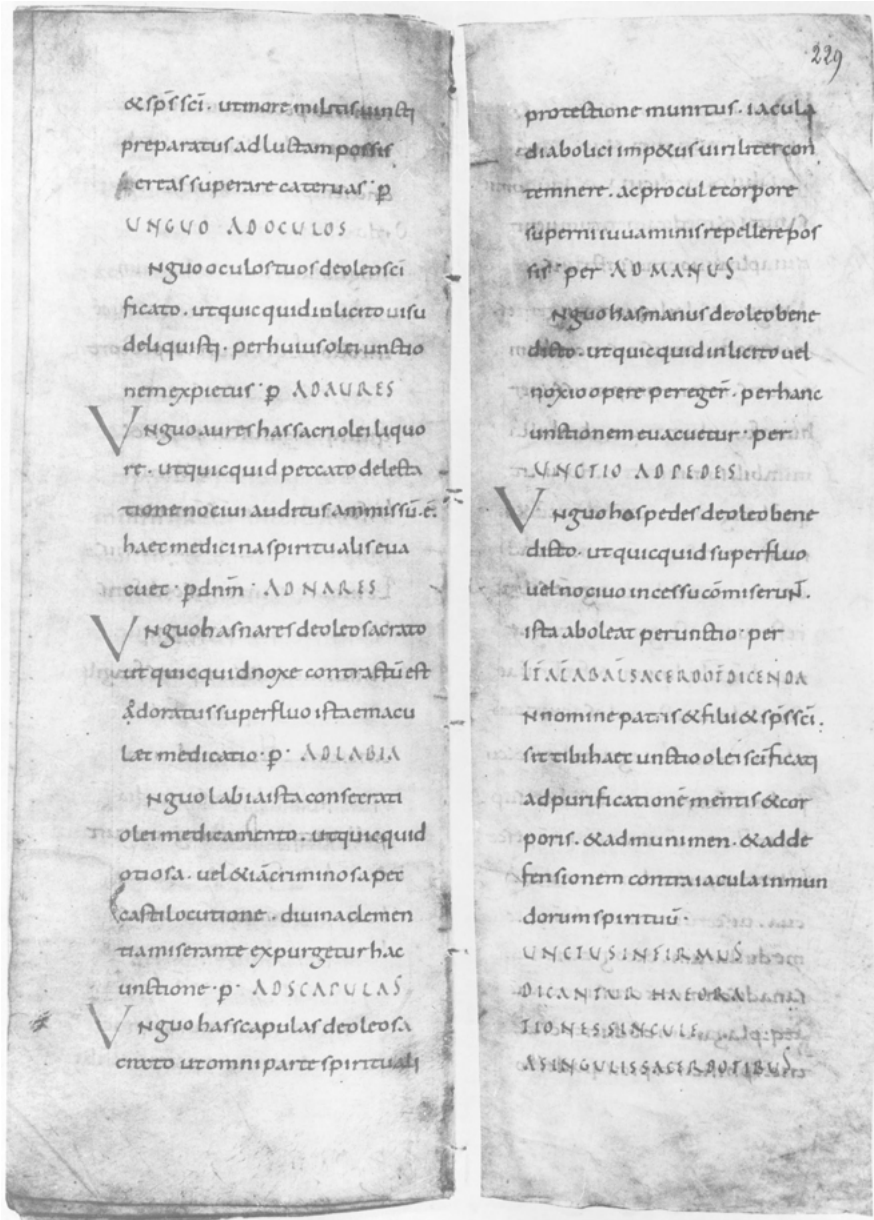 & sp̄s sc̄i · ut more militis uncti
preparatus ad luctam possis
aereas superare cateruas · p̱
UNGUO AD OCULOS
nguo oculos tuos de oleo sc̄i
ficato . ut quicquid inlicito uisu
deliquisti · per huius olei unctio
nem expietur · p̱ AD AURES
Unguo aures has sacri olei liquo
re . ut quicquid peccato delecta
tione nociui auditus ammissū · ē ·
haec medicina spiritualis eua
cuet · p̱ dnm̄ · AD NARES
Unguo has nares de oleo sacrato
ut quicquid noxe contractū est
adoratus superfluo ista emacu
laet medicatio · p̱ · AD LABIA
nguo labia ista consecrati
olei medicamento . ut quicquid
otiosa . uel &iā criminosa pec
casti locutione . diuina clemen
tia miserante expurgetur hac
unctione · p̱ · AD SCAPULAS
Unguo has scapulas de oleo sa
crato ut omni parte spirituali
229
protectione munitus . iacula
diabolici imp&us uiriliter con
temnere . ac procul e corpore
superni iuuaminis repellere pos
sis · per AD MANUS
nguo has manus de oleo bene
dicto . ut quicquid inlicito uel
noxio opere pereger̄ . per hanc
unctionem euacuetur · per
UNCTIO AD PEDES
Unguo hos pedes de oleo bene
dicto . ut quicquid superfluo
uel nociuo incessu cōmiserun̄t .
ista aboleat perunctio · per
IT̄ AL̄ AB AL̄ SACERDOT̄ DICENDA
n nomine patris & filii & sp̄s sc̄i .
sit tibi haec unctio olei sc̄ificati
ad purificationē mentis & cor
poris . & ad munimen . & ad de
fensionem contra iacula inmun
dorum spirituū ·
UNCTUS INFIRMUS
DICANTUR HAE ORA
TIONES SINGULE
A SINGULIS SACERDOTIBUS